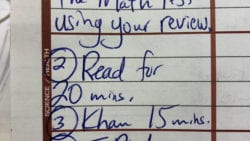 The Math Test
using your review.
② Read for
20 mins.
③ Khan 15 mins.
SCIENCE / HEALTH